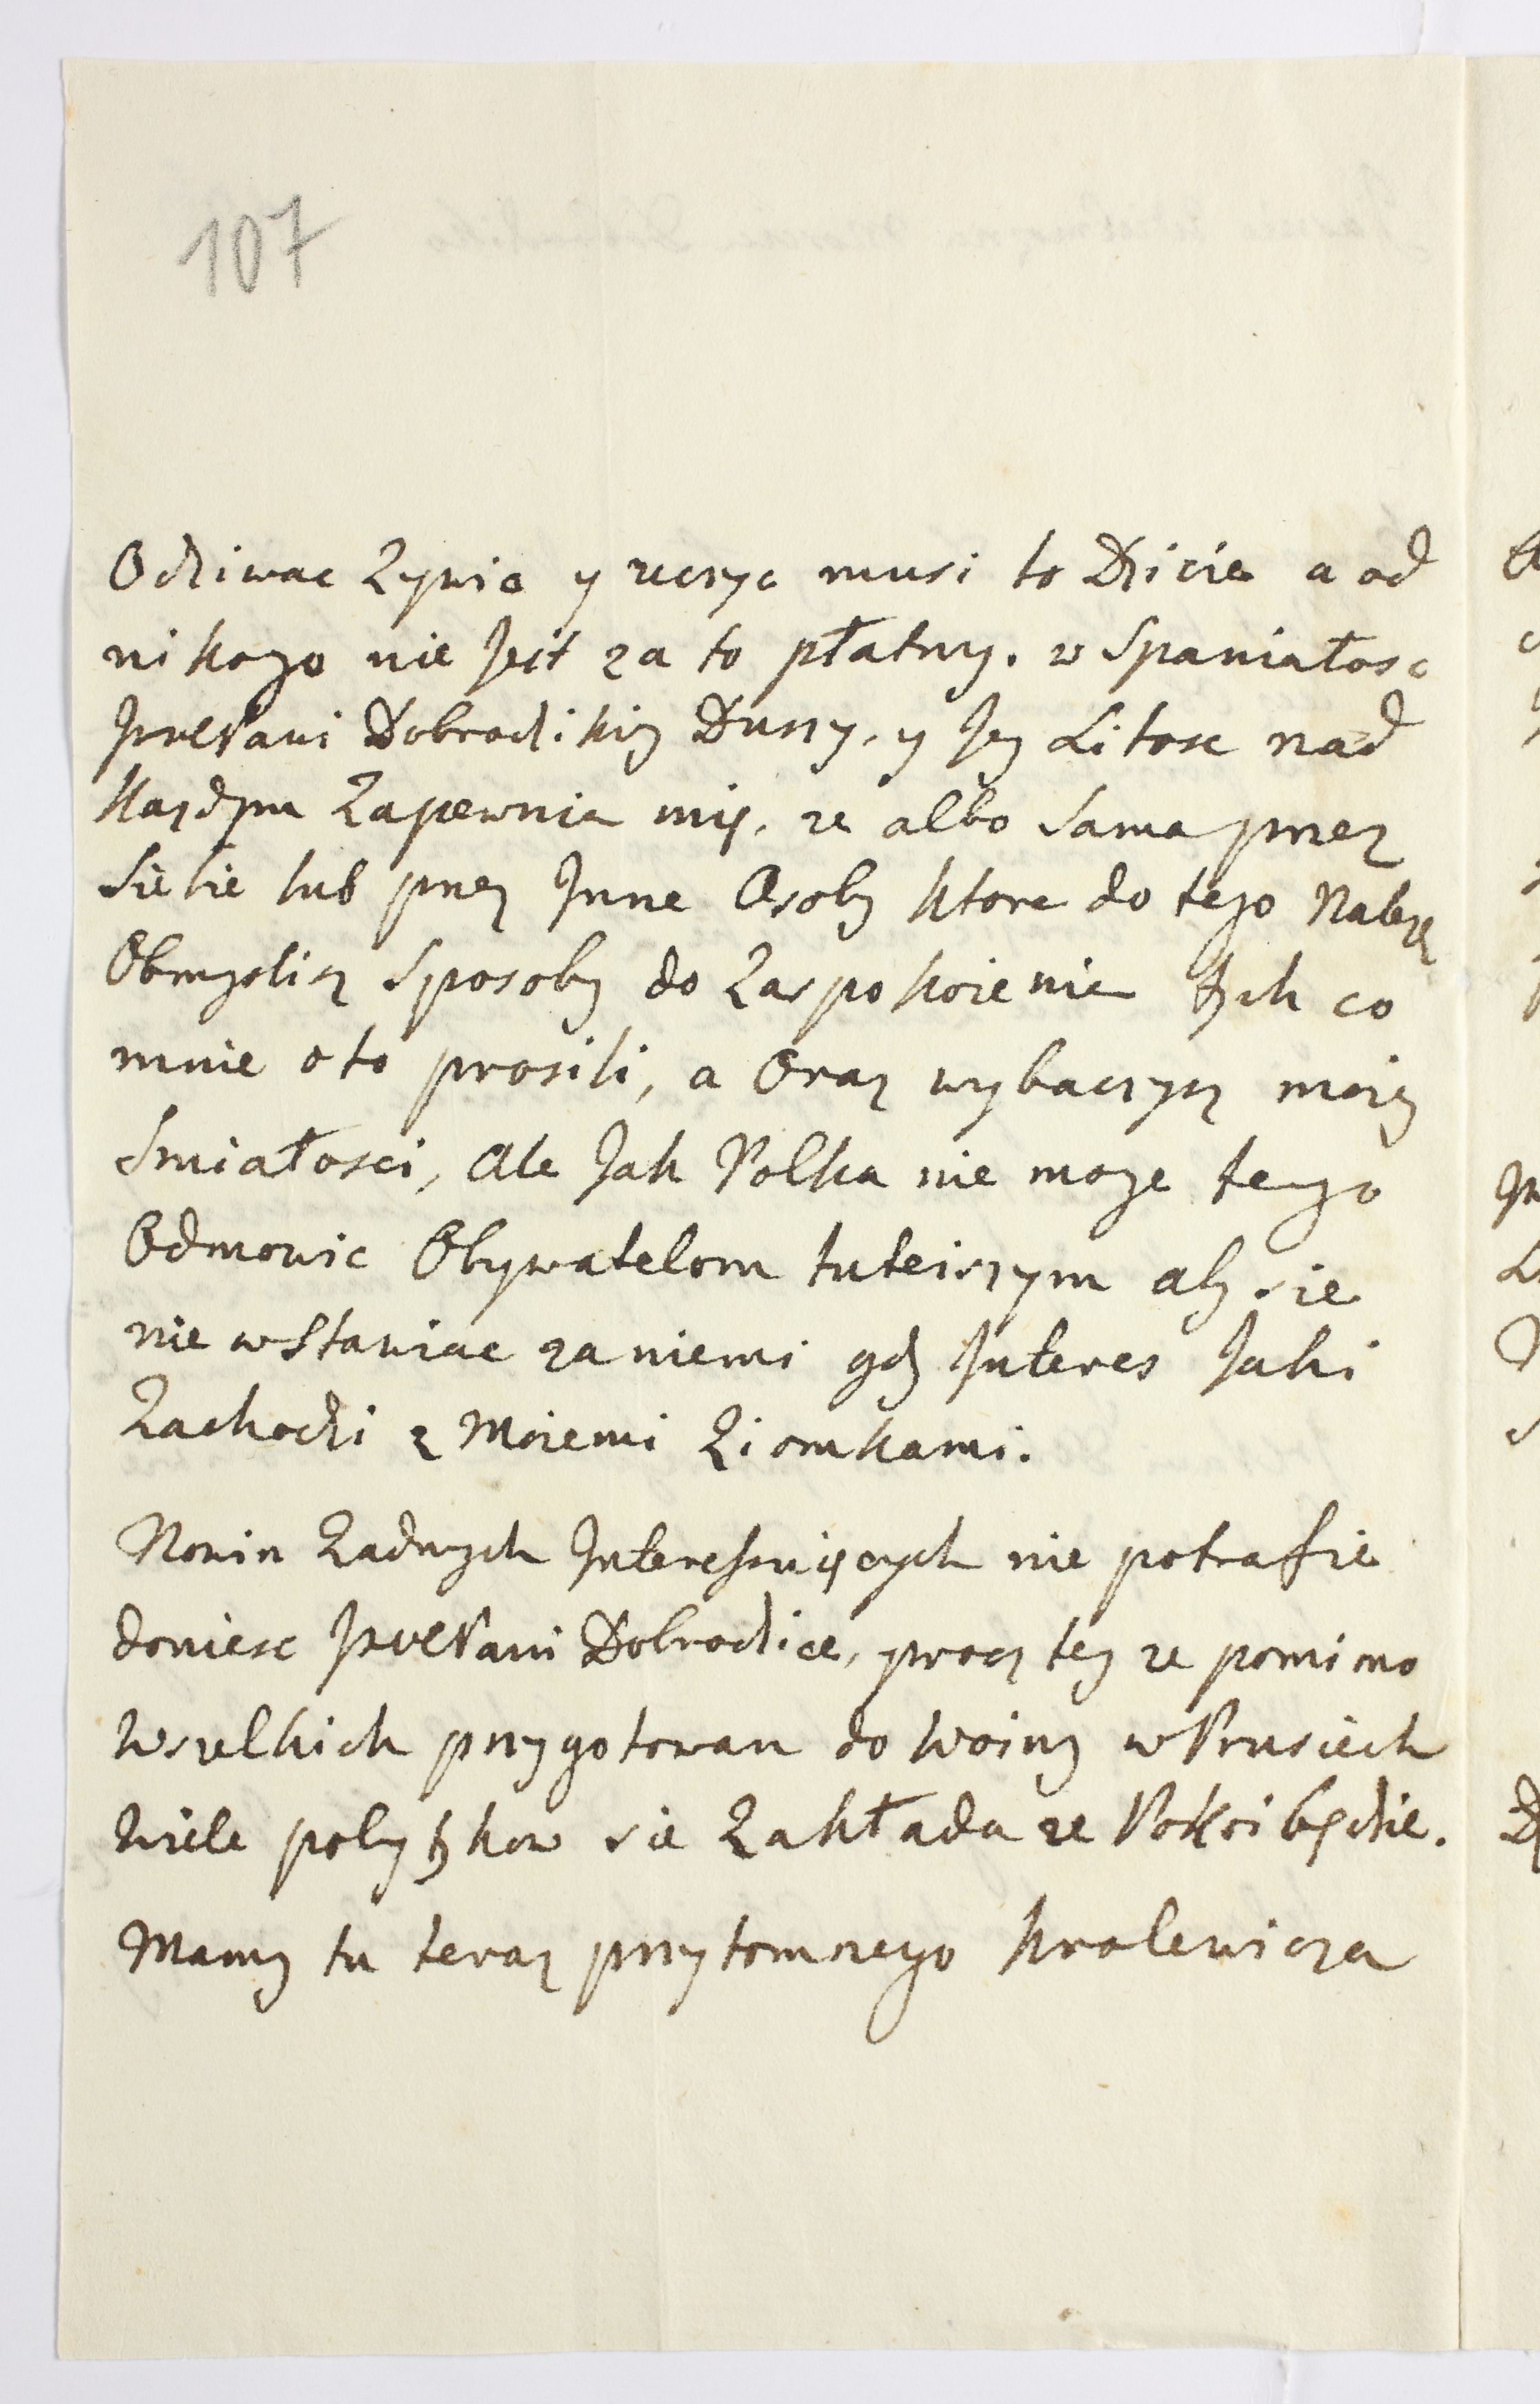 107
Odziwac Zywic y uczyc musi to Dzicie a od
nikogo nie Jest za to płatny. wSpaniałosc
JWWPani Dobrodziki Duszy, y Jey Litosc nad
kazdym Zapewnia mię, ze albo Sama przez
Siebie lub przez Jnne Osoby ktore do tego Nalezą
Obmyslisz Sposoby do Zaspokoienia tych co
mnie oto prosili, a Oraz wybaczysz moiey
Smiałosci, Ale Jak Polka nie moge tego
Odmowic Obywatelom tuteiszym aby sie
nie wstawiac zaniemi gdy Jnteres Jaki
Zachodzi z Moiemi Ziomkami.
Nowin Zadnych Jnteressuiących nie potrafie
doniesc JWWPani Dobrodzice, procz tey ze pomimo
Wszelkich przygotowan do Woiny wPrusiech
Wiele polytykow sie Zakłada ze Pokoi będzie.
Mamy tu teraz przytomnego Krolewicza